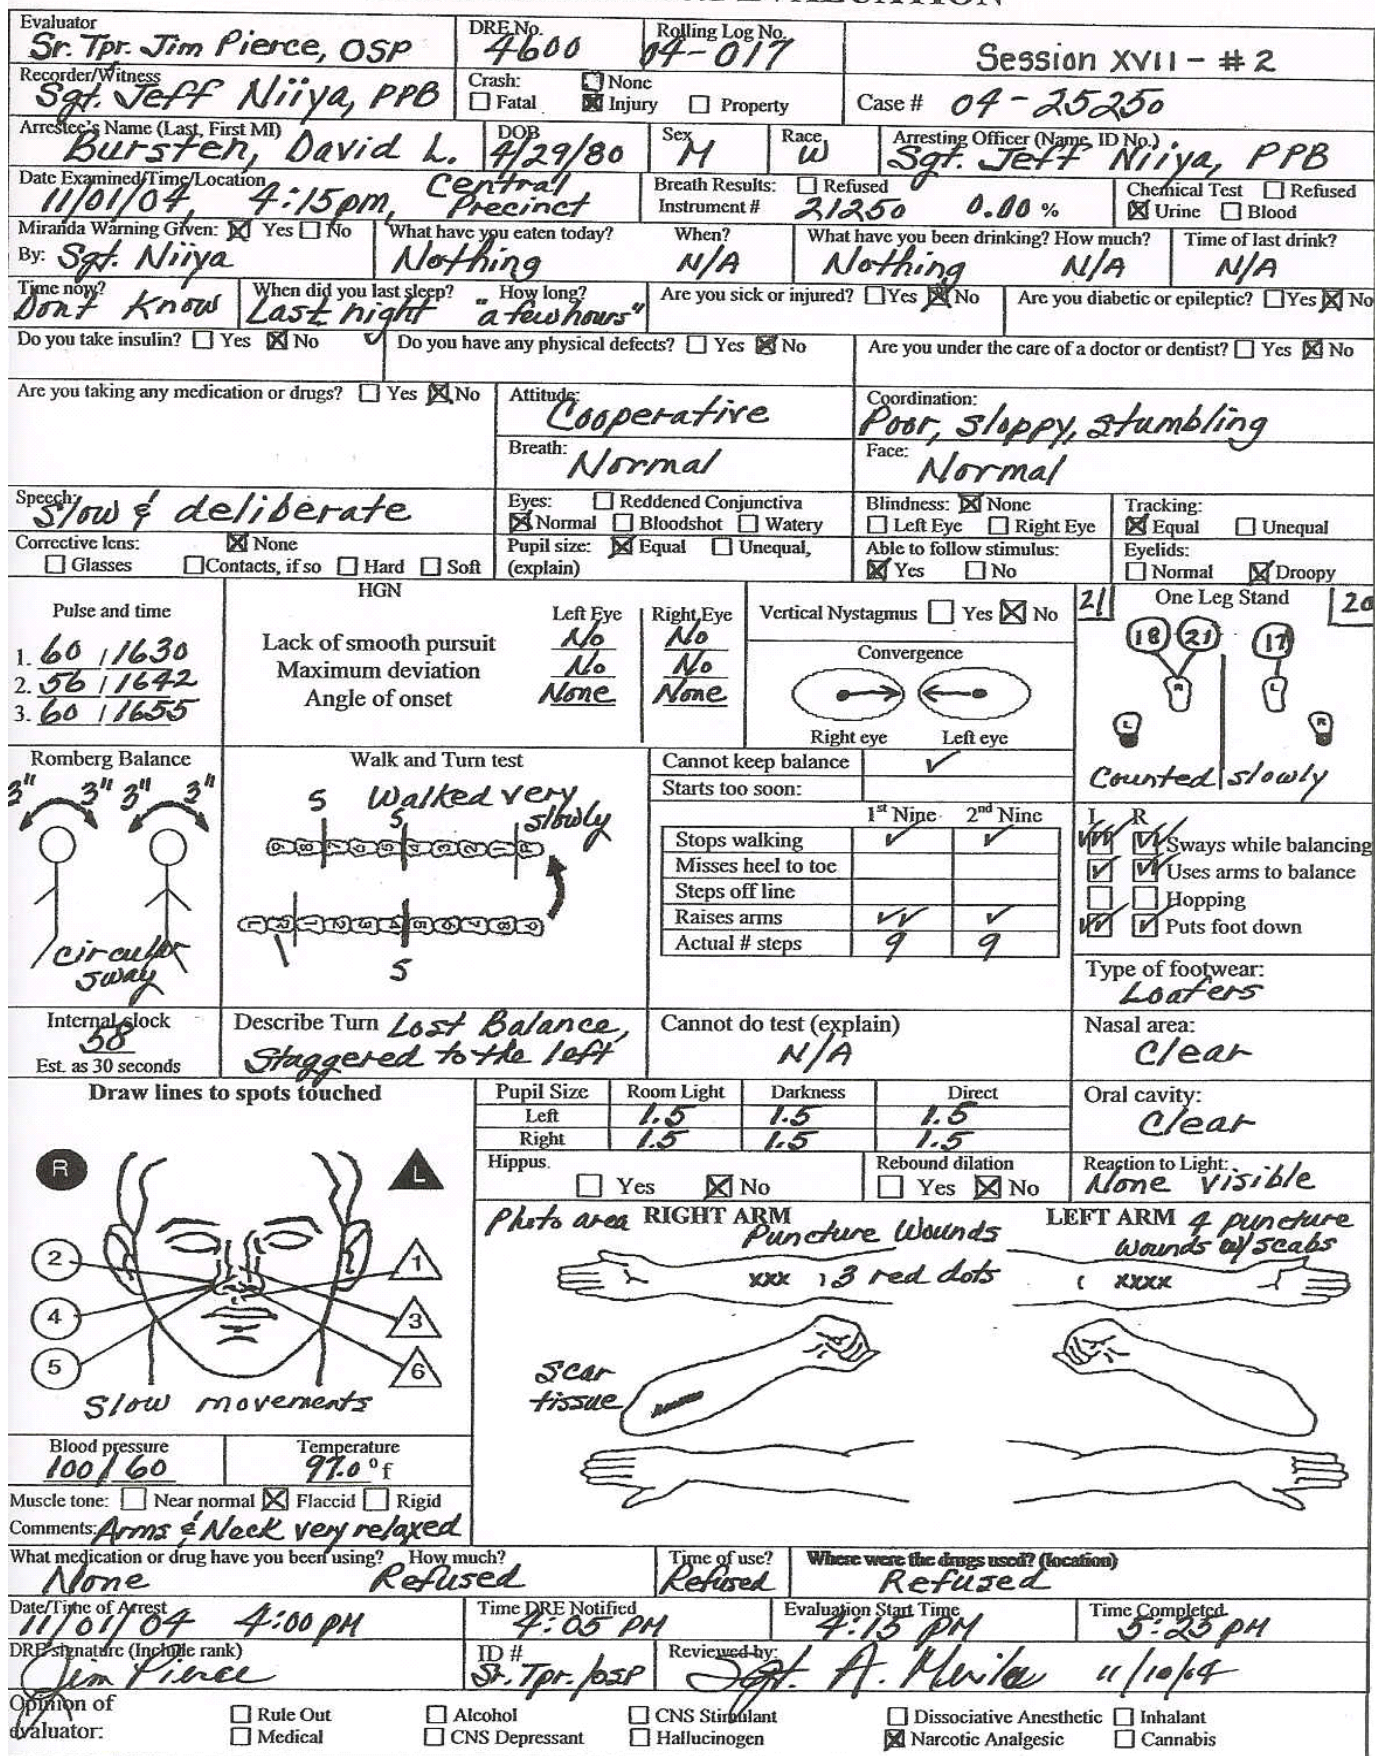 EVALUATION
Evaluator
Sr. Tpr. Jim Pierce, OSP
DRE No.
4600
Rolling Log No.
04-017
Session XVII - #2
Recorder/Witness
Sgt. Jeff Niiya, PPB
Crash: None
Fatal Injury Property
Case # 04-25250
Arrestee's Name (Last, First MI)
Bursten, David L.
DOB
4/29/80
Sex
M
Race
W
Arresting Officer (Name, ID No.)
Sgt. Jeff Niiya, PPB
Date Examined/Time/Location
11/01/04, 4:15pm, Central Precinct
Breath Results: Refused
Instrument # 21250 0.00 %
Chemical Test Refused
Urine Blood
Miranda Warning Given: Yes No
By: Sgt. Niiya
What have you eaten today? When?
Nothing N/A
What have you been drinking? How much?
Nothing N/A
Time of last drink?
N/A
Time now?
Don't Know
When did you last sleep? How long?
Last night "a few hours"
Are you sick or injured? Yes No
Are you diabetic or epileptic? Yes No
Do you take insulin? Yes No
Do you have any physical defects? Yes No
Are you under the care of a doctor or dentist? Yes No
Are you taking any medication or drugs? Yes No
Attitude:
Cooperative
Coordination:
Poor, sloppy, stumbling
Breath:
Normal
Face:
Normal
Speech:
Slow & deliberate
Eyes: Reddened Conjunctiva
Normal Bloodshot Watery
Blindness: None
Left Eye Right Eye
Tracking:
Equal Unequal
Corrective lens: None
Glasses Contacts, if so Hard Soft
Pupil size: Equal Unequal,
(explain)
Able to follow stimulus:
Yes No
Eyelids:
Normal Droopy
Pulse and time
1. 60 / 1630
2. 56 / 1642
3. 60 / 1655
HGN
Left Eye Right Eye
Lack of smooth pursuit No No
Maximum deviation No No
Angle of onset None None
Vertical Nystagmus Yes No
Convergence
Right eye Left eye
21 One Leg Stand 20
18 21 17
R L
L R
Counted slowly
Romberg Balance
3" 3" 3" 3"
circular
sway
Walk and Turn test
Walked very
slowly
S S
S
Cannot keep balance
Starts too soon:
1st Nine 2nd Nine
Stops walking
Misses heel to toe
Steps off line
Raises arms
Actual # steps 9 9
L R
Sways while balancing
Uses arms to balance
Hopping
Puts foot down
Type of footwear:
Loafers
Internal clock
58
Est. as 30 seconds
Describe Turn Lost Balance,
Staggered to the left
Cannot do test (explain)
N/A
Nasal area:
Clear
Draw lines to spots touched
R L
2 1
4 3
5 6
Slow movements
Pupil Size Room Light Darkness Direct
Left 1.5 1.5 1.5
Right 1.5 1.5 1.5
Oral cavity:
Clear
Hippus.
Yes No
Rebound dilation
Yes No
Reaction to Light:
None visible
Photo area RIGHT ARM
Puncture Wounds
xxx 3 red dots
LEFT ARM 4 puncture
wounds w/ scabs
xxxx
Scar
tissue
Blood pressure
100/60
Temperature
97.0 °f
Muscle tone: Near normal Flaccid Rigid
Comments: Arms & Neck very relaxed
What medication or drug have you been using? How much?
None Refused
Time of use?
Refused
Where were the drugs used? (location)
Refused
Date/Time of Arrest
11/01/04 4:00 PM
Time DRE Notified
4:05 PM
Evaluation Start Time
4:15 PM
Time Completed
5:25 PM
DRE signature (Include rank)
Jim Pierce
ID #
Sr. Tpr./OSP
Reviewed by:
Sgt. A. 11/10/04
Opinion of
evaluator:
Rule Out Alcohol CNS Stimulant Dissociative Anesthetic Inhalant
Medical CNS Depressant Hallucinogen Narcotic Analgesic Cannabis